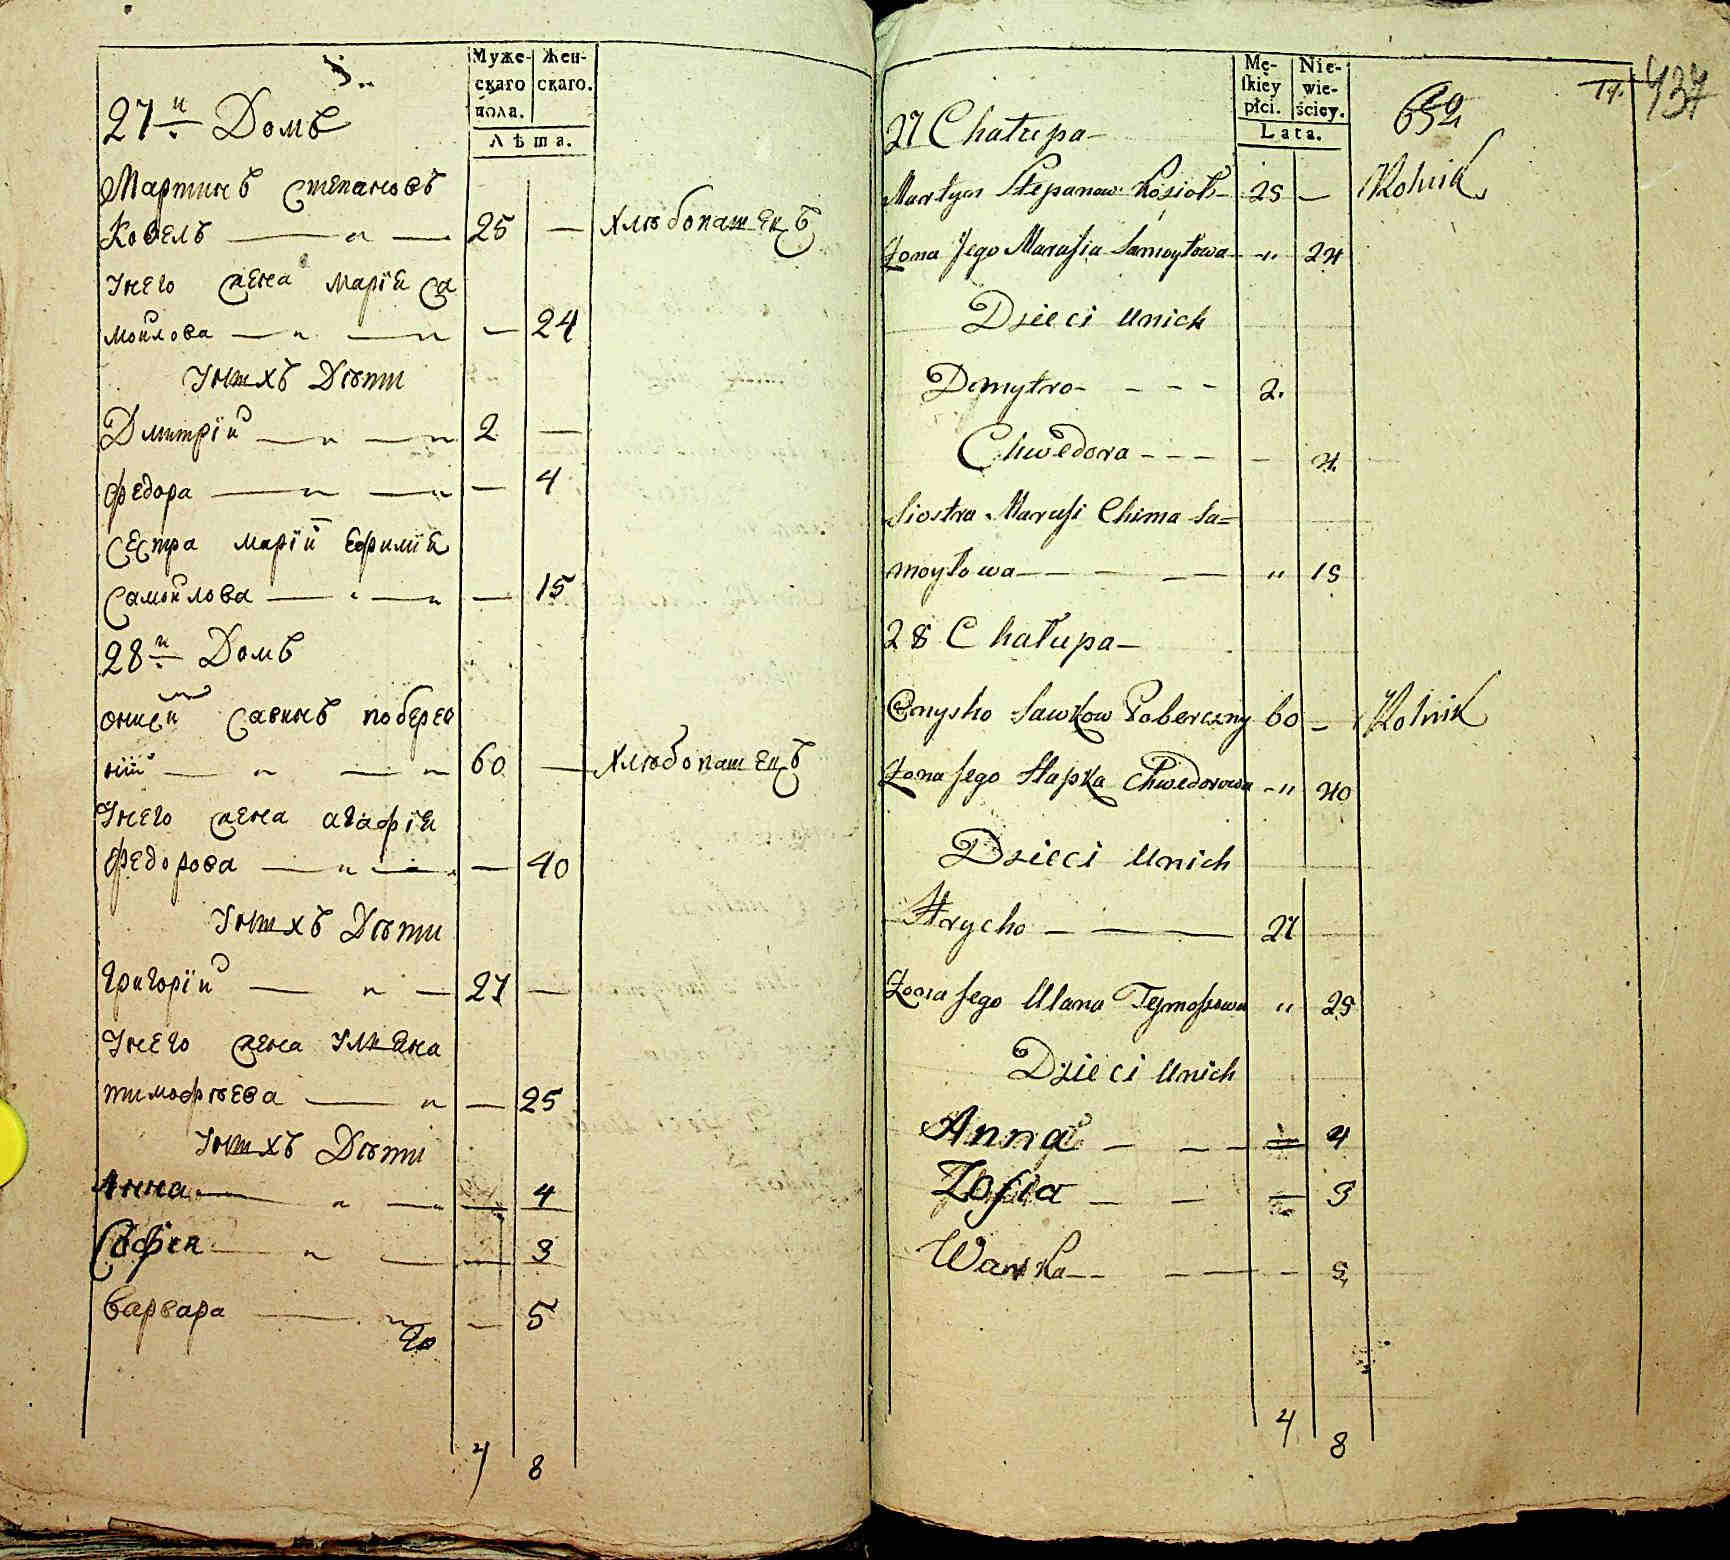 Муже-
скаго
пола.
Жен-
скаго.
Лѣта.
27й Домъ
Мартинъ Степановъ
Козелъ 25 — хлѣбопашецъ
Унего жена Марія Са
мойлова — 24
Унихъ Дѣти
Дмитрій 2 —
Федора — 4
Сестра Маріи Ефимія
Самойлова — 15
28й Домъ
Онисей Савинъ побереж
ній 60 — хлѣбопашецъ
Унего жена Агафія
Федорова — 40
Унихъ Дѣти
Григорій 27 —
Унего жена Улияна
тимофѣева — 25
Унихъ Дѣти
Анна — 4
Софія — 3
варвара — 5
4 8
Mę-
skiey
płci.
Nie-
wie-
ściey.
Lata.
14. 437
652
27 Chałupa
Martyn Stepanow Kozioł 25 — Rolnik
Żona Jego Marusia Samoyłowa " 24
Dzieci Unich
Dmytro 2.
Chwedora — 4.
Siostra Marusi Chima Sa=
moyłowa " 15
28 Chałupa
Onysko Sawkow Pobereżny 60 — Rolnik
Żona Jego Hapka Chwedorowa " 40
Dzieci Unich
Hrycko 27
Żona Jego Ulana Tymoszowa " 25
Dzieci Unich
Anna — 4
Zofia — 3
Warka — 5
4 8